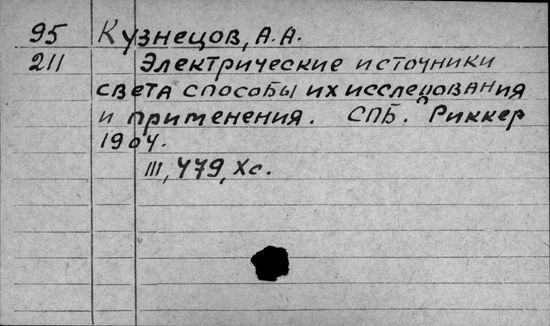 95 Кузнецов, А.А.
211 Электрические источники
света способы их исследования
и применения. СПБ. Риккер
1904.
III, 479, Xс.